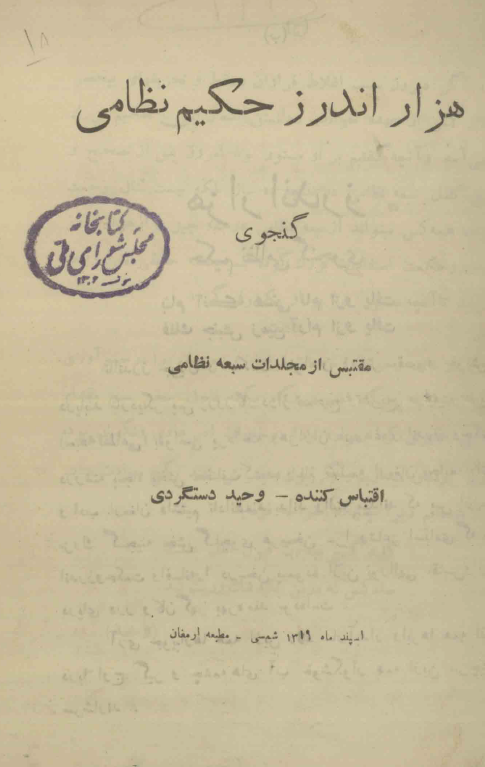 ۱۸
هزار اندرز حکیم نظامی
گنجوی
کتابخانه
مجلس شورای ملی
۱۳۰۲
مقتبس از مجلدات سبعه نظامی
اقتباس کننده – وحید دستگردی
اسپند ماه ۱۳۱۹ شمسی – مطبعه ارمغان